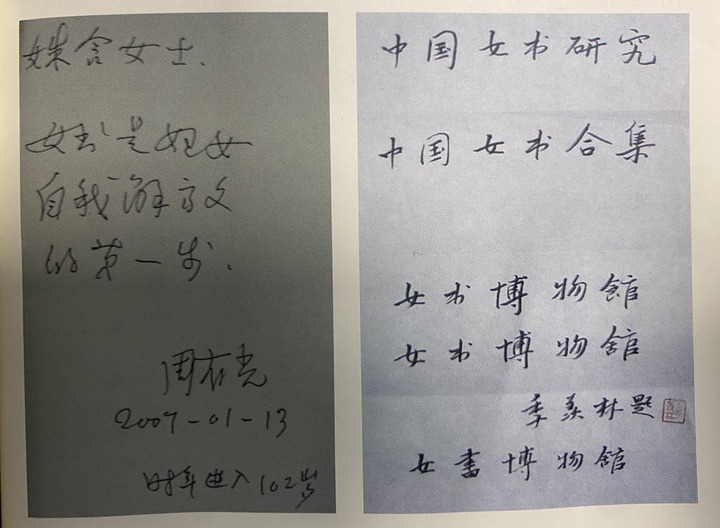 姝含女士.
女书是妇女
自我解放
的第一步.
周有光
2007-01-13
时年进入102岁
中国女书研究
中国女书合集
女书博物館
女书博物館
季羡林题
女書博物館